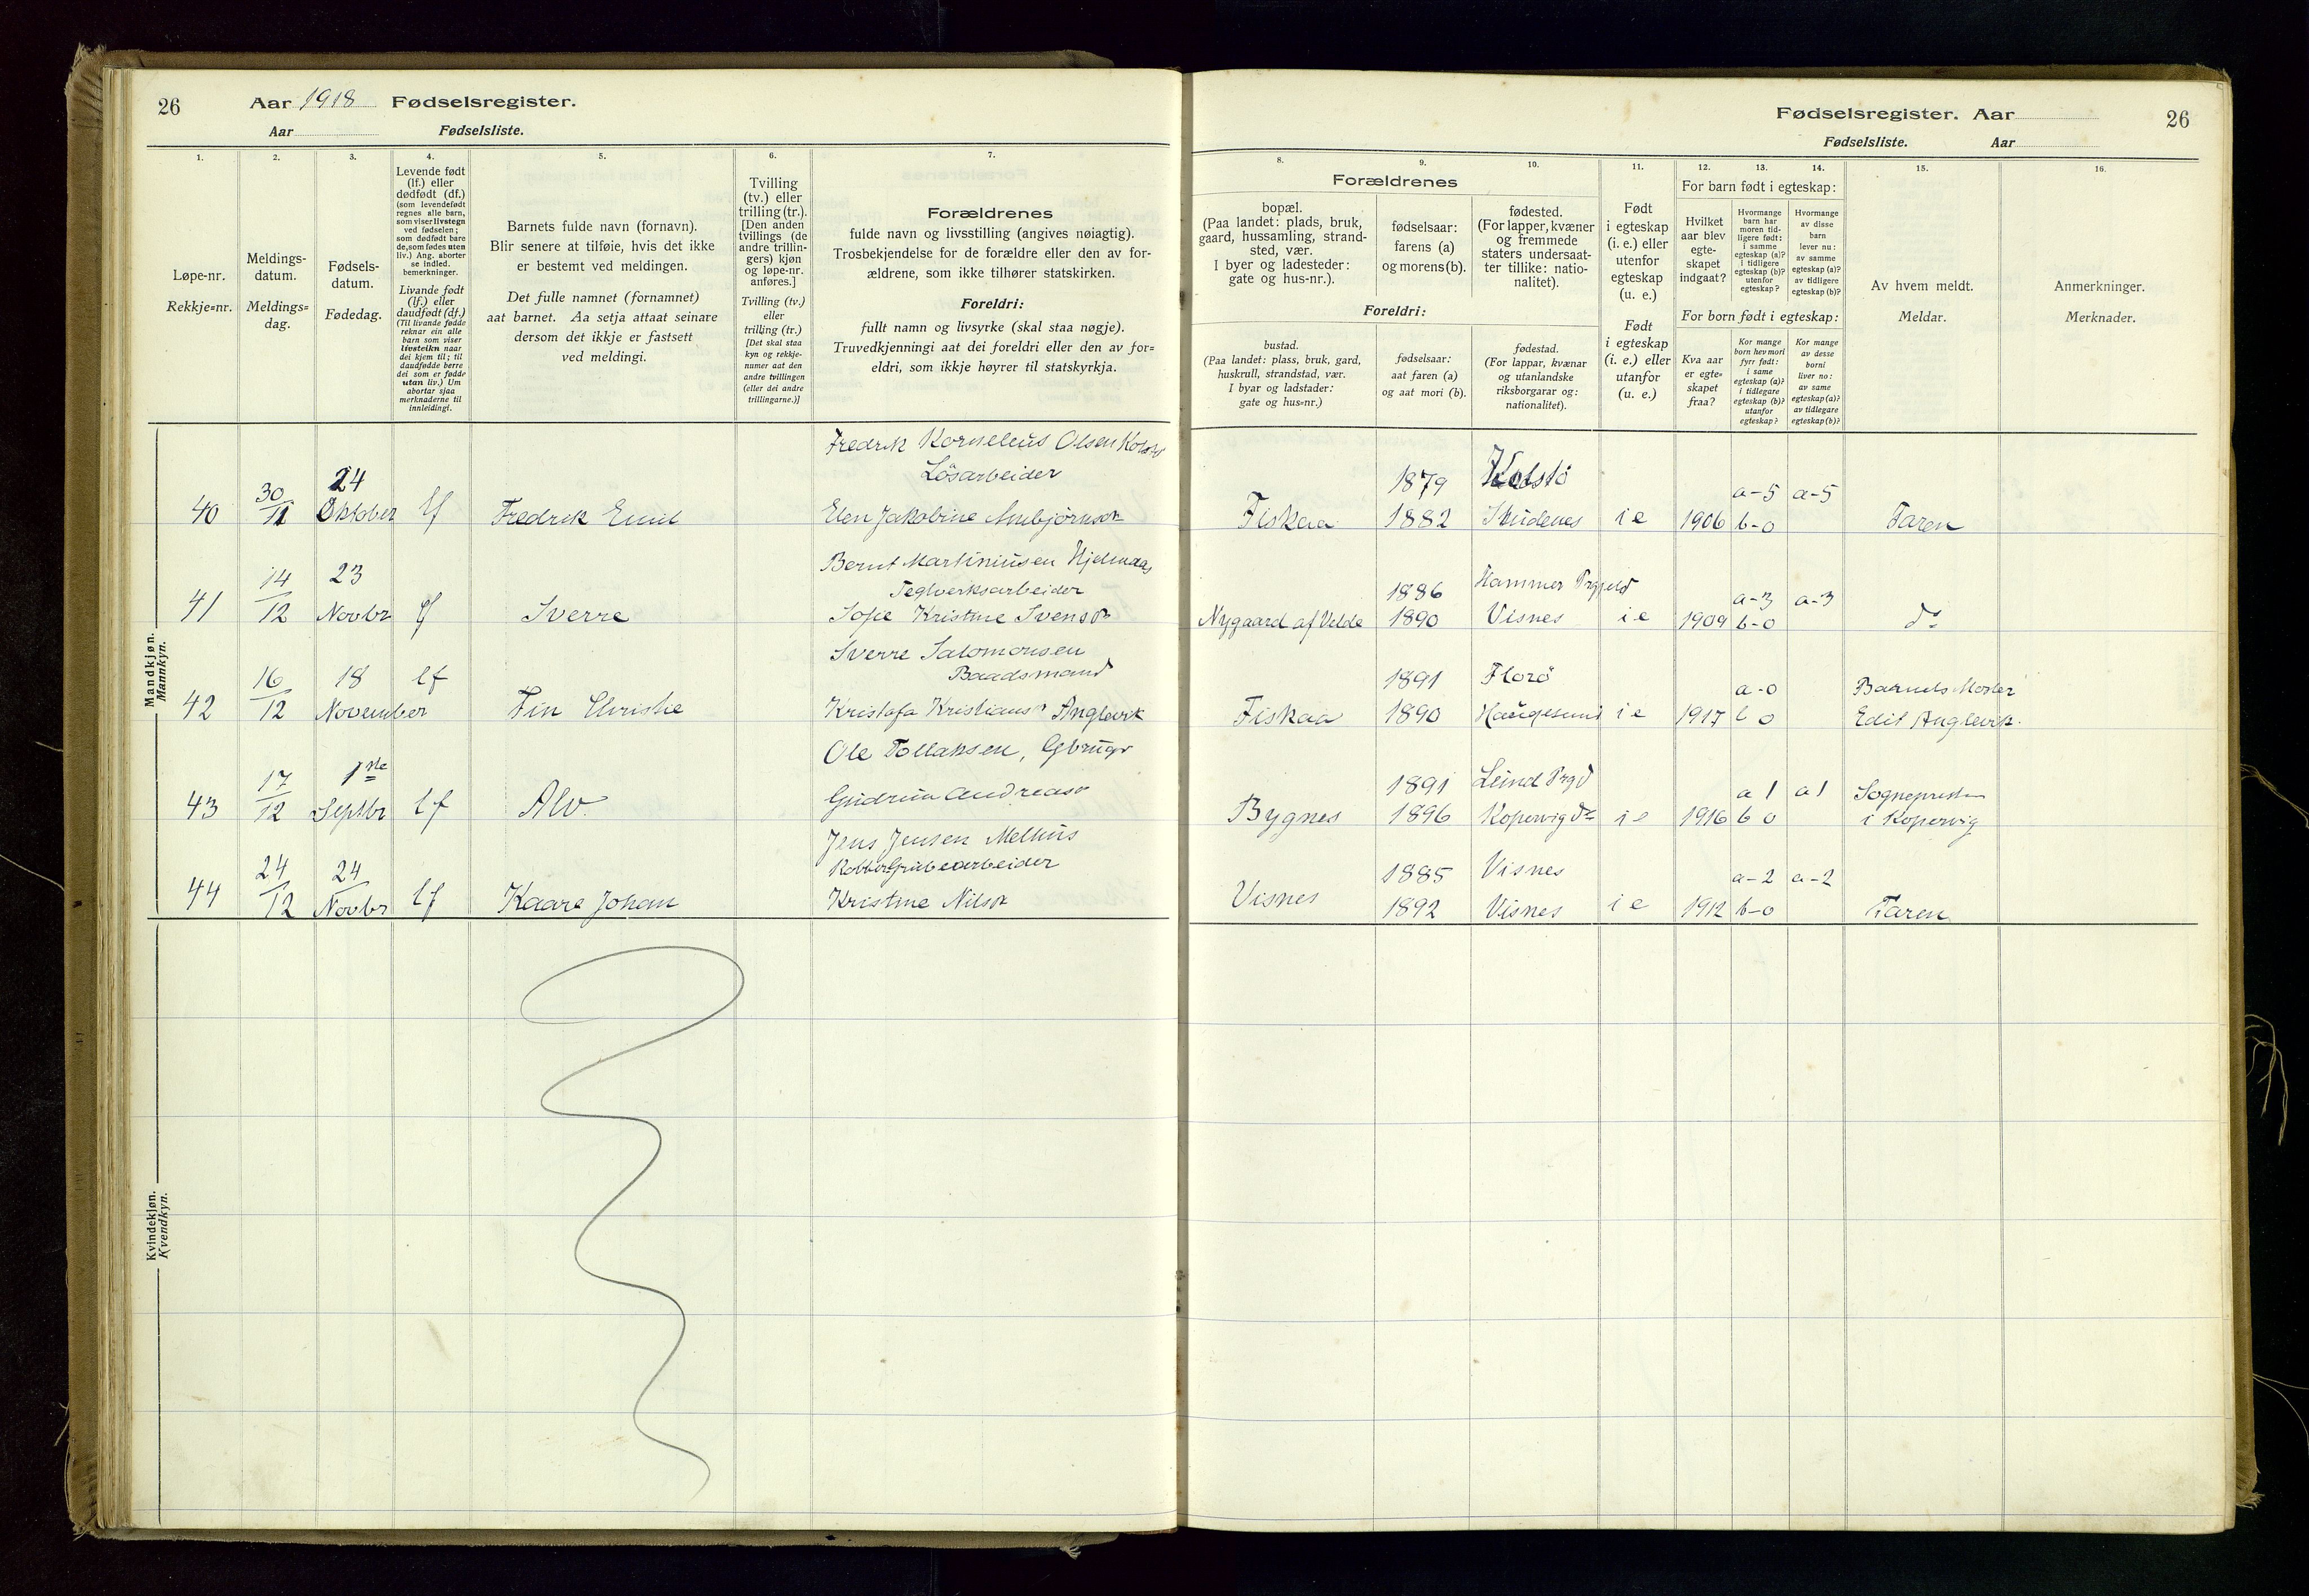 26 Aar 1918 Fødselsregister.
Aar Fødselsliste.
1.
Løpe-nr.
Rekkje=nr.
2.
Meldings-
datum.
Meldings=
dag.
3.
Fødsels-
datum.
Fødedag.
4.
Levende født
(lf.) eller
dødfødt (df.)
(som levendefødt
regnes alle barn,
som viser livstegn
ved fødselen;
som dødfødt bare
de, som fødes uten
liv.) Ang. aborter
se indled.
bemerkninger.
Livande født
(lf.) eller
daudfødt (df.)
(Til livande fødde
reknar ein alle
barn som viser
livsteikn naar
dei kjem til; til
daudfødde berre
dei som er fødde
utan liv.) Um
abortar sjaa
merknaderne til
innleidingi.
5.
Barnets fulde navn (fornavn).
Blir senere at tilføie, hvis det ikke
er bestemt ved meldingen.
Det fulle namnet (fornamnet)
aat barnet. Aa setja attaat seinare
dersom det ikkje er fastsett
ved meldingi.
6.
Tvilling
(tv.) eller
trilling (tr.).
[Den anden
tvillings (de
andre trillin-
gers) kjøn
og løpe-nr.
anføres.]
Tvilling (tv.)
eller
trilling (tr.)
[Det skal staa
kyn og rekkje-
numer aat den
andre tvillingen
(eller dei andre
trillingarne.)]
7.
Forældrenes
fulde navn og livsstilling (angives nøiagtig).
Trosbekjendelse for de forældre eller den av for-
ældrene, som ikke tilhører statskirken.
Foreldri:
fullt namn og livsyrke (skal staa nøgje).
Truvedkjenningi aat dei foreldri eller den av for=
eldri, som ikkje høyrer til statskyrkja.
Fødselsregister. Aar 26
Fødselsliste. Aar
8.
Forældrenes
bopæl.
(Paa landet: plads, bruk,
gaard, hussamling, strand-
sted, vær.
I byer og ladesteder:
gate og hus-nr.).
Foreldri:
bustad.
(Paa landet: plass, bruk, gard,
huskrull, strandstad, vær.
I byar og ladstader:
gate og hus=nr.)
9.
fødselsaar:
farens (a)
og morens (b).
fødselsaar:
aat faren (a)
og aat mori (b).
10.
fødested.
(For lapper, kvæner
og fremmede
staters undersaat-
ter tillike: natio-
nalitet).
fødestad.
(For lappar, kvænar
og utanlandske
riksborgarar og:
nationalitet).
11.
Født
i egteskap
(i. e.) eller
utenfor
egteskap
(u. e.)
Født
i egteskap
(i. e.) eller
utanfor
(u. e.)
12. 13. 14.
For barn født i egteskap:
Hvilket
aar blev
egte-
skapet
indgaat?
Hvormange
barn har
moren tid-
ligere født:
i samme
egteskap (a)?
I tidligere
egteskap (b)?
utenfor
egteskap?
Hvormange
av disse
barn
lever nu:
av samme
egteskap (a)?
av tidligere
egteskap (b)?
For born født i egteskap:
Kva aar
er egte=
skapet
fraa?
Kor mange
born hev mori
fyrr født:
i same
egteskap (a)?
i tidlegare
egteskap (b)?
utanfor
egteskap?
Kor mange
av desse
borni
liver no:
av same
egteskap (a)?
av tidlegare
egteskap (b)?
15.
Av hvem meldt.
Meldar.
16.
Anmerkninger.
Merknader.
Mandkjøn.
Mannkyn.
Fredrik Kornelius Olsen Kolstø
Lösarbeider
40 30/11 24 Oktober lf Fredrik Emil
Elen Jakobine Ambjörnsdr
Fiskaa 1879 Kolstö
1882 Skudenes i e 1906 a-5 b-0 a-5 Faren
Bernt Martiniusen Hjelmaas
Teglverksarbeider
41 14/12 23 Novbr lf Sverre
Sofie Kristine Svensdr
Nygaard af Velde 1886 Hammer Prgjeld
1890 Visnes i e 1909 a-3 b-0 a-3 do
Sverre Salomonsen
Baadsmand
42 16/12 18 November lf Fin Christie
Kristofa Kristiansdr Anglevik
Fiskaa 1891 Florö
1890 Haugesund i e 1917 a-0 b 0 Barnets Moster
Edit Anglevik.
Ole Tollaksen, Gbruger
43 17/12 1ste Septbr lf Alv.
Gudrun Andreasdr
Bygnes 1891 Prgd
1896 Kopervig do i e 1916 a 1 b 0 a 1 Sognepresten
i Kopervig
Jens Jensen Melhus
Kobbergrubearbeider
44 24/12 24 Novbr lf Kaare Johan
Kristine Nilsdr
Visnes 1885 Visnes
1892 Visnes i e 1912 a-2 b-0 a-2 Faren
Kvindekjøn.
Kvendkyn.